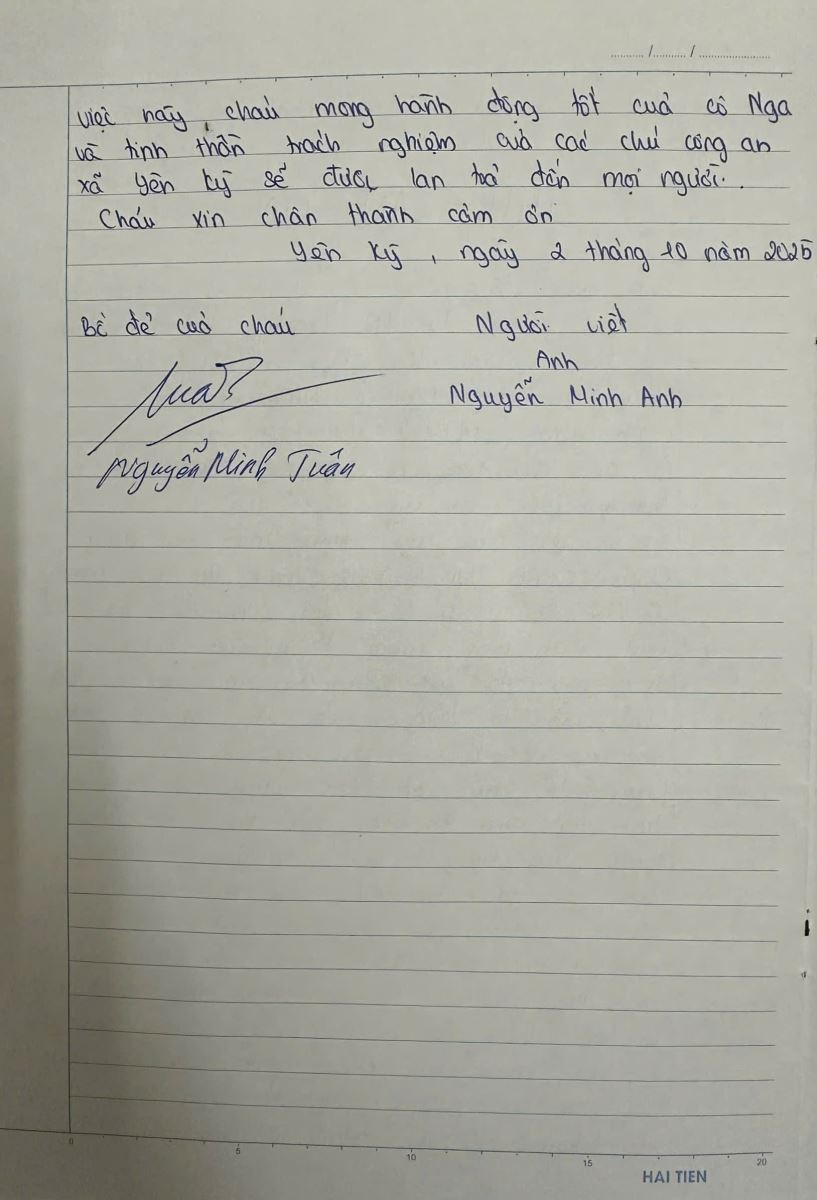 ..../..../........
việc này, cháu mong hành động tốt của cô Nga
và tinh thần trách nghiệm của các chú công an
xã Yên Kỳ sẽ được lan toả đến mọi người.
Cháu xin chân thành cảm ơn
Yên Kỳ, ngày 2 tháng 10 năm 2025
Bố đẻ của cháu Người viết
Anh
Nguyễn Minh Anh
Nguyễn Minh Tuân
0 5 10 15 20
HAI TIEN